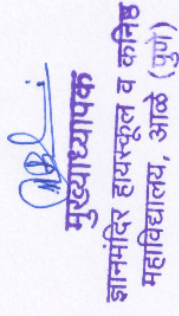 मुख्याध्यापक
ज्ञानमंदिर हायस्कूल व कनिष्ठ
महाविद्यालय, आळे (पुणे)